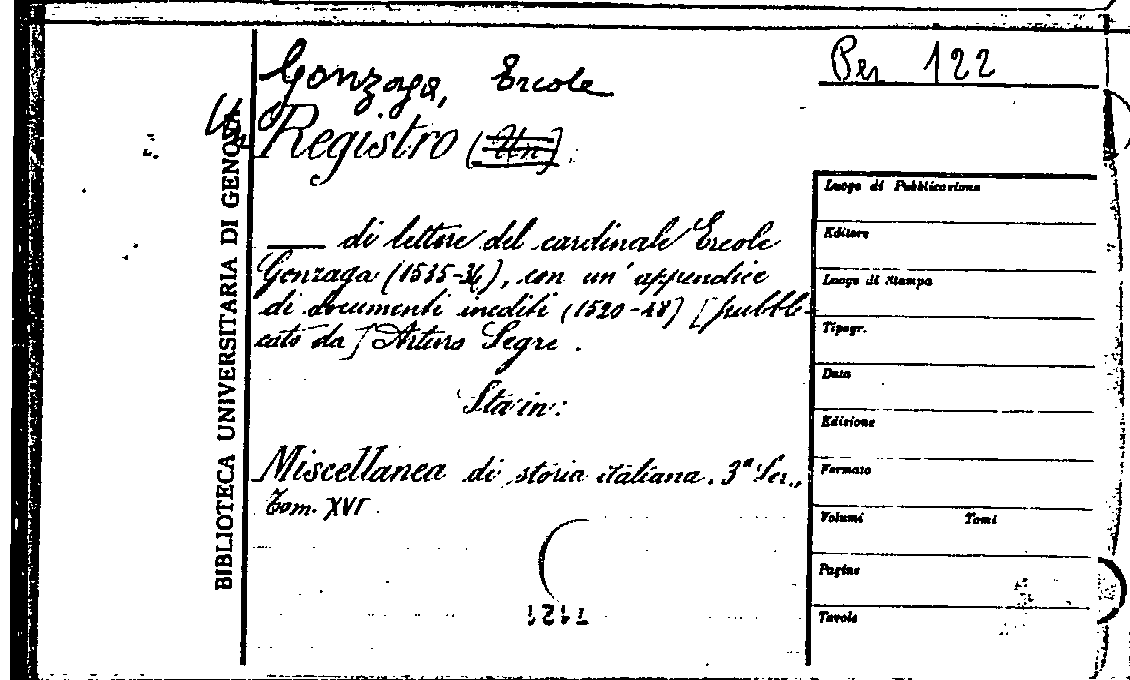 Gonzaga, Ercole
Per 122
Un
Registro (Un)
____ di lettere del cardinale Ercole
Gonzaga (1535-36), con un' appendice
di documenti inediti (1520-48) [pubbli-
cato da] Arturo Segre.
Sta in:
Miscellanea di storia italiana. 3ª Ser.,
Tom. XVI.
BIBLIOTECA UNIVERSITARIA DI GENOVA
Luogo di Pubblicazione
Editore
Luogo di Stampa
Tipogr.
Data
Edizione
Formato
Volumi Tomi
Pagine
Tavole